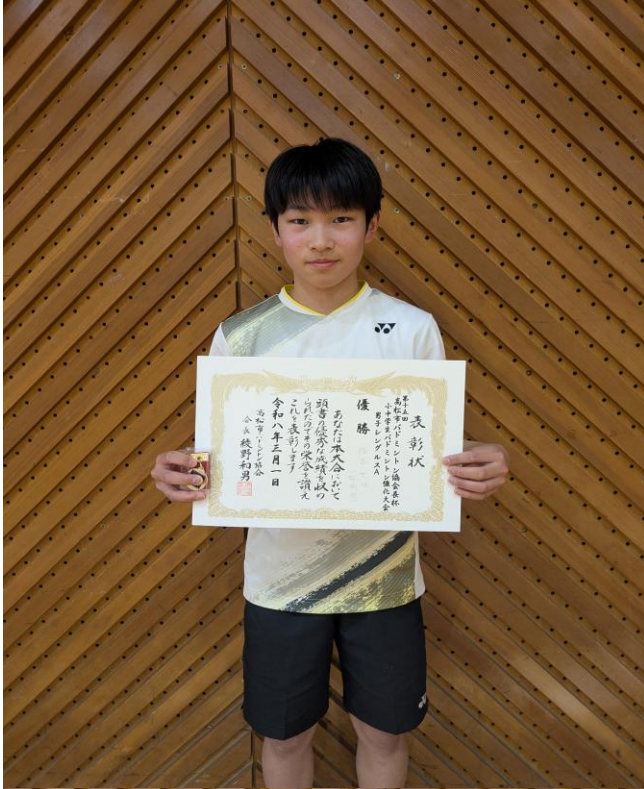 表彰状
第十五回
高松市バドミントン協会長杯
小中学生バドミントン強化大会
男子シングルスA
優勝
あなたは本大会において
頭書の優秀な成績を収め
られたのでその栄誉を讃え
これを表彰します
令和八年三月一日
高松市バドミントン協会
会長 綾野和男